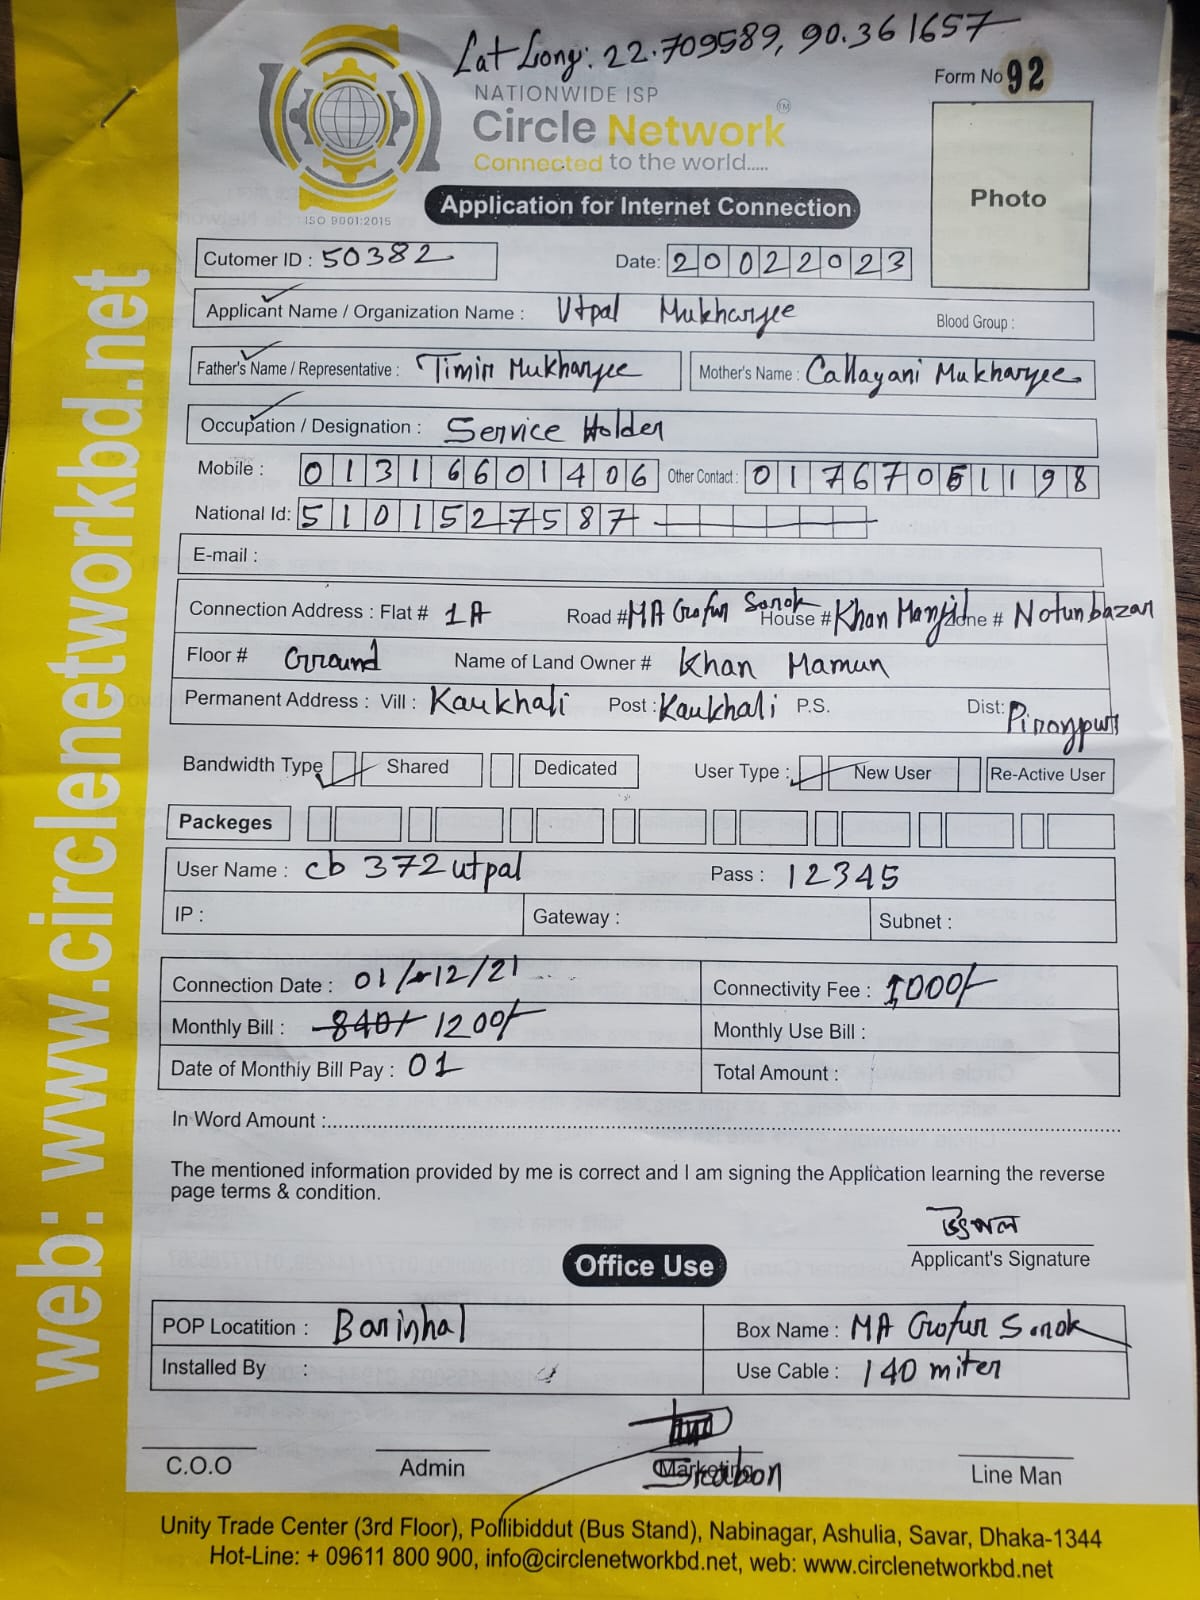 Lat Long: 22.709589, 90.361657
Form No 92
NATIONWIDE ISP
Circle Network TM
Connected to the world.....
ISO 9001:2015
Application for Internet Connection
Photo
Cutomer ID : 50382
Date: 20022023
Applicant Name / Organization Name : Utpal Mukharjee
Blood Group :
Father's Name / Representative : Timir Mukharjee
Mother's Name : Callayani Mukharjee
Occupation / Designation : Service Holder
Mobile : 01316601406 Other Contact : 01767051198
National Id: 5101527587
E-mail :
Connection Address : Flat # 1A Road # MA Gofur Sorok House # Khan Manjil Zone # Notunbazar
Floor # Ground Name of Land Owner # Khan Mamun
Permanent Address : Vill : Kaukhali Post : Kaukhali P.S. Dist: Pirojpur
Bandwidth Type Shared Dedicated User Type : New User Re-Active User
Packeges
User Name : cb 372 utpal Pass : 12345
IP : Gateway : Subnet :
Connection Date : 01/12/21 Connectivity Fee : 1000/-
Monthly Bill : 840/- 1200/- Monthly Use Bill :
Date of Monthly Bill Pay : 01 Total Amount :
In Word Amount :
The mentioned information provided by me is correct and I am signing the Application learning the reverse
page terms & condition.
উৎপল
Applicant's Signature
Office Use
POP Locatition : Barishal Box Name : MA Gofur Sorok
Installed By : Use Cable : 140 miter
C.O.O Admin Marketing Line Man
Unity Trade Center (3rd Floor), Pollibiddut (Bus Stand), Nabinagar, Ashulia, Savar, Dhaka-1344
Hot-Line: + 09611 800 900, info@circlenetworkbd.net, web: www.circlenetworkbd.net
web: www.circlenetworkbd.net